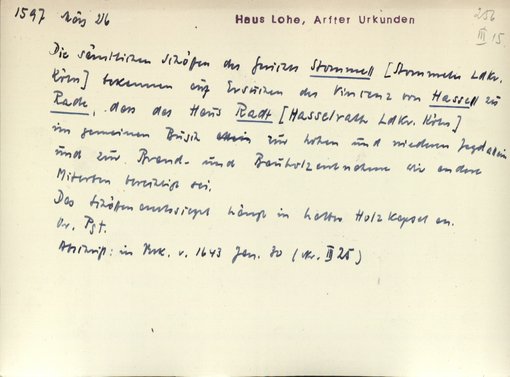 1597 März 26
Haus Lohe, Arfter Urkunden
256
III 15
Die sämtlichen Schöffen des Gerichts Stommell [Stommeln Ldkr.
Köln] bekennen auf Ersuchen des Vinzenz von Hassell zu
Rade, dass das Haus Radt [Hasselrath Ldkr. Köln]
im gemeinen Busch allein zur hohen und niederen Jagd allein
und zur Brand- und Bauholzentnahme wie andere
Miterben berechtigt sei.
Das Schöffenamtssiegel hängt in halber Holzkapsel an.
Or. Pgt.
Abschrift: in Urk. v. 1643 Jan. 30 (Nr. III 25)